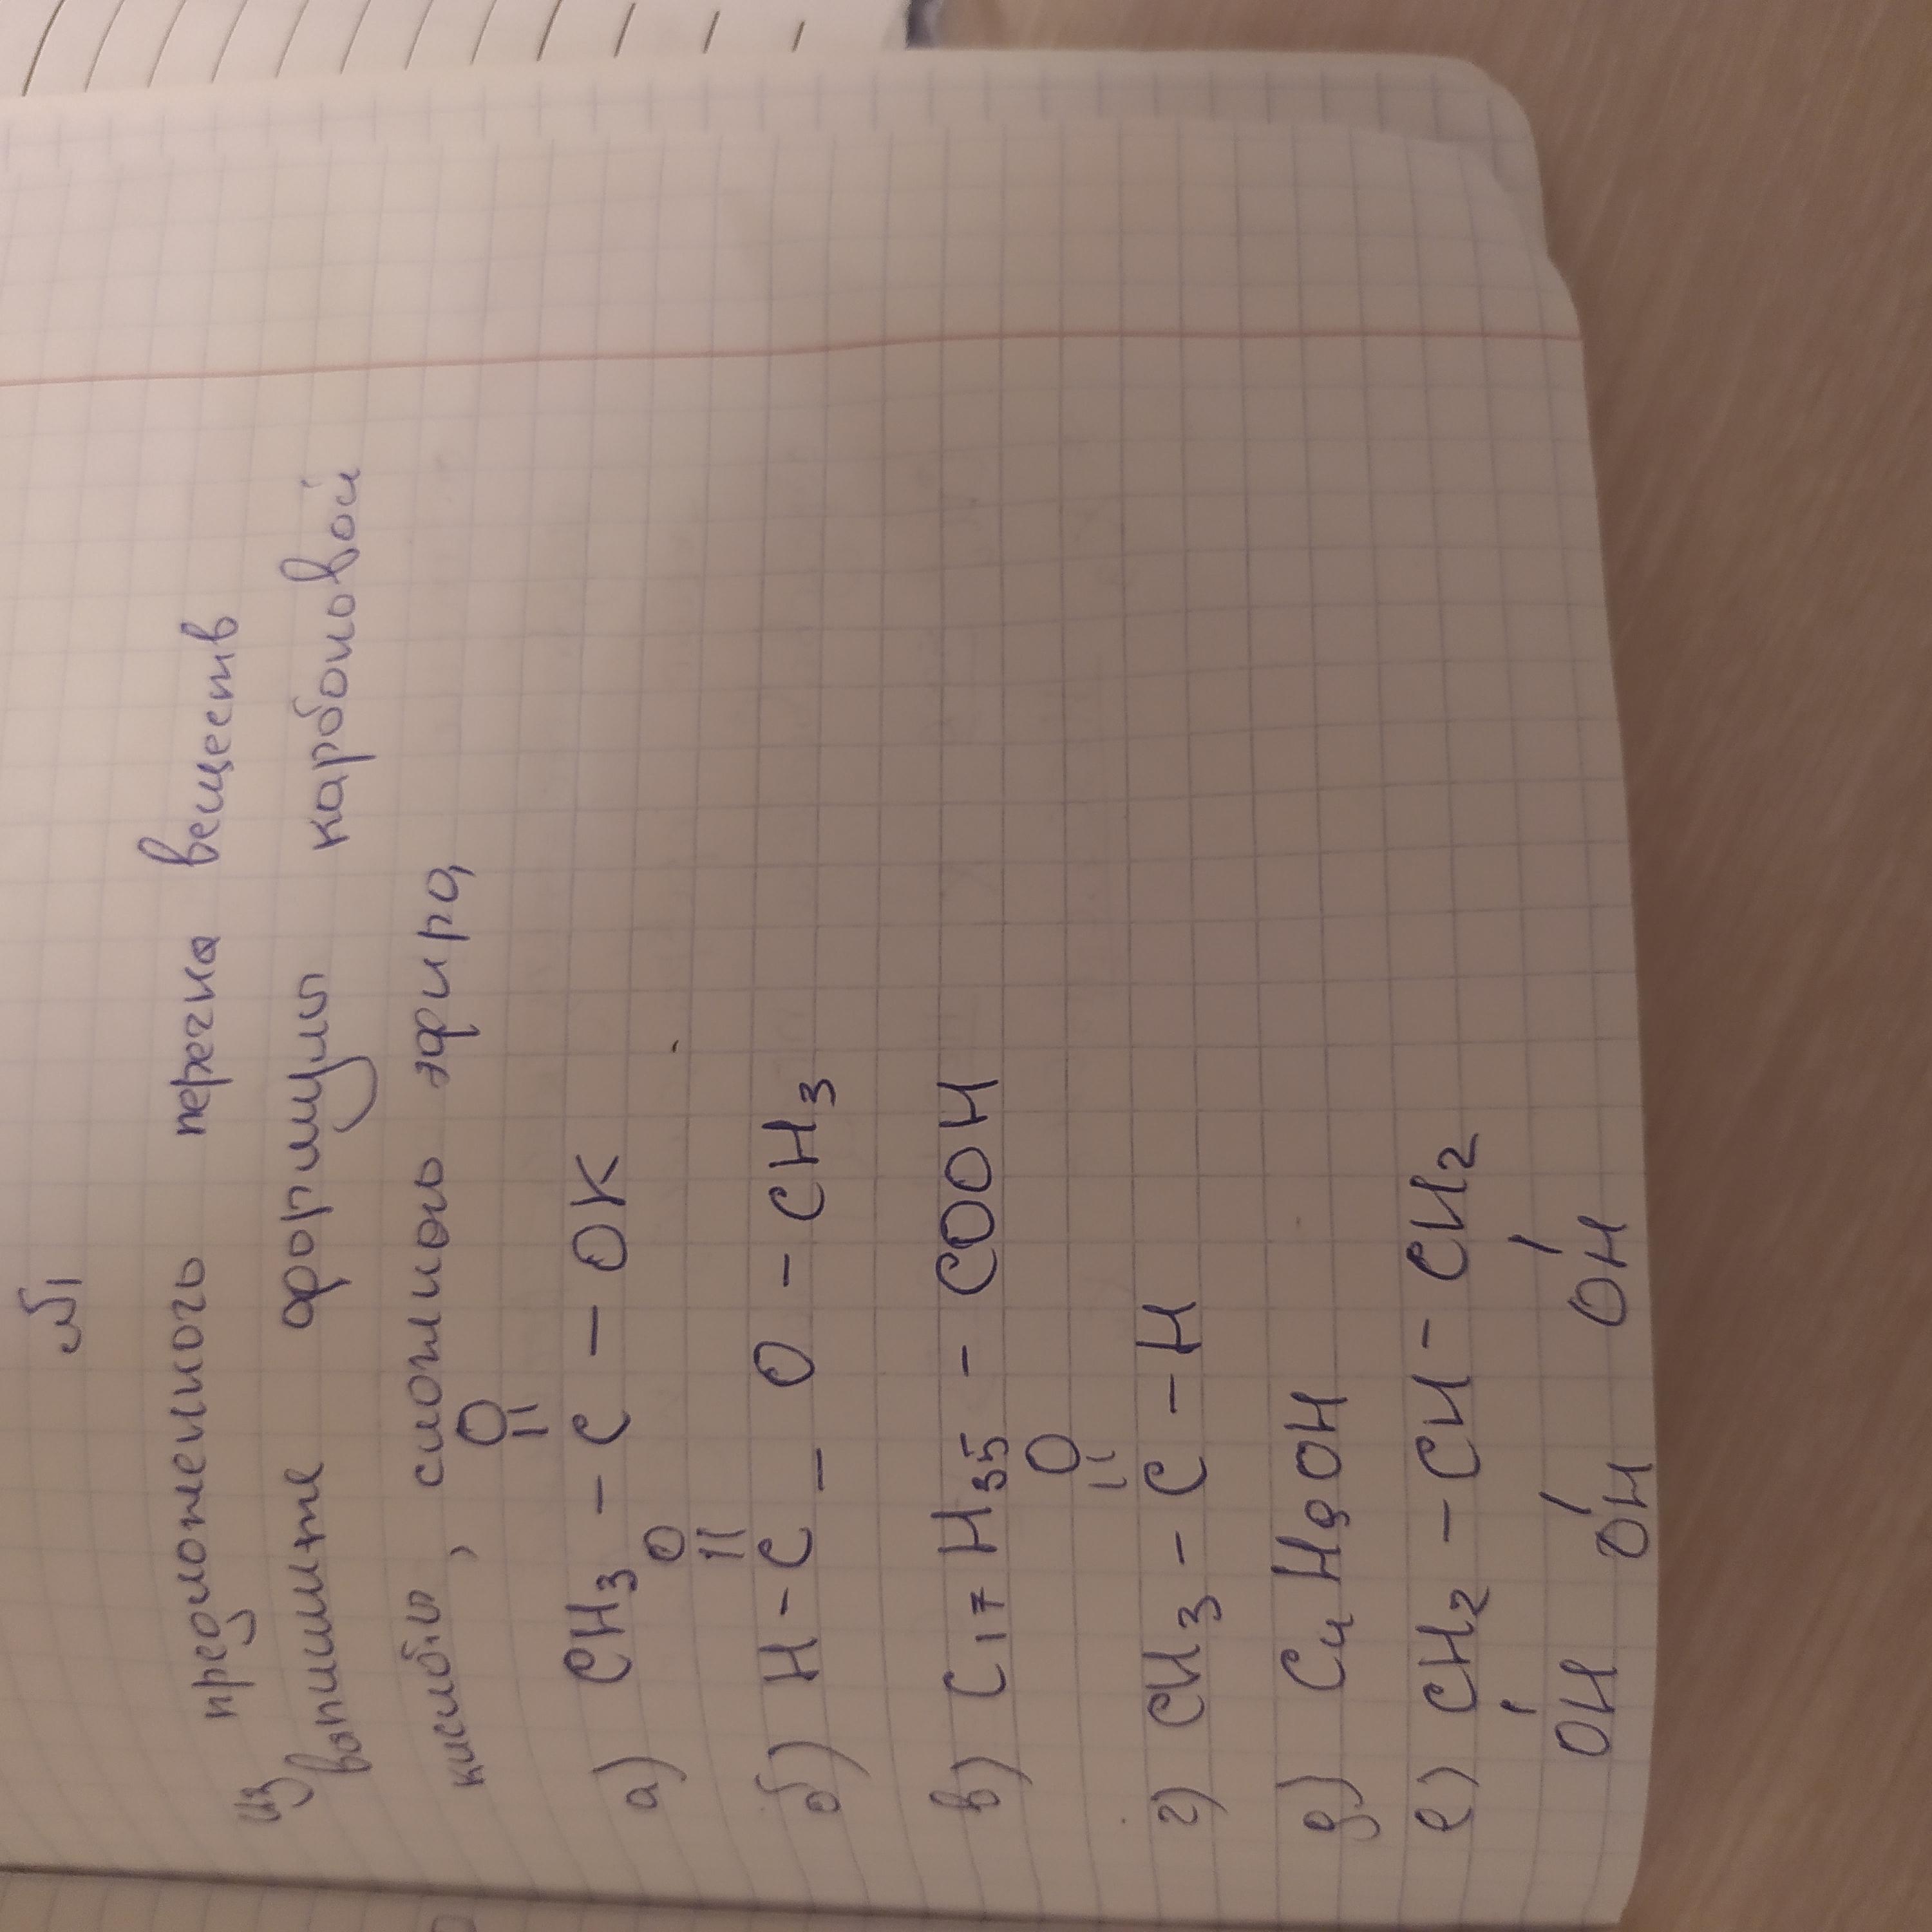 №1
Из предложенного перечня веществ
выпишите формулы карбоновой
кислоты, сложного эфира,
O
||
а) CH3 - C - OK
O
||
б) H - C - O - CH3
в) C17H35 - COOH
O
||
г) CH3 - C - H
д) C4H9OH
е) CH2 - CH - CH2
OH OH OH